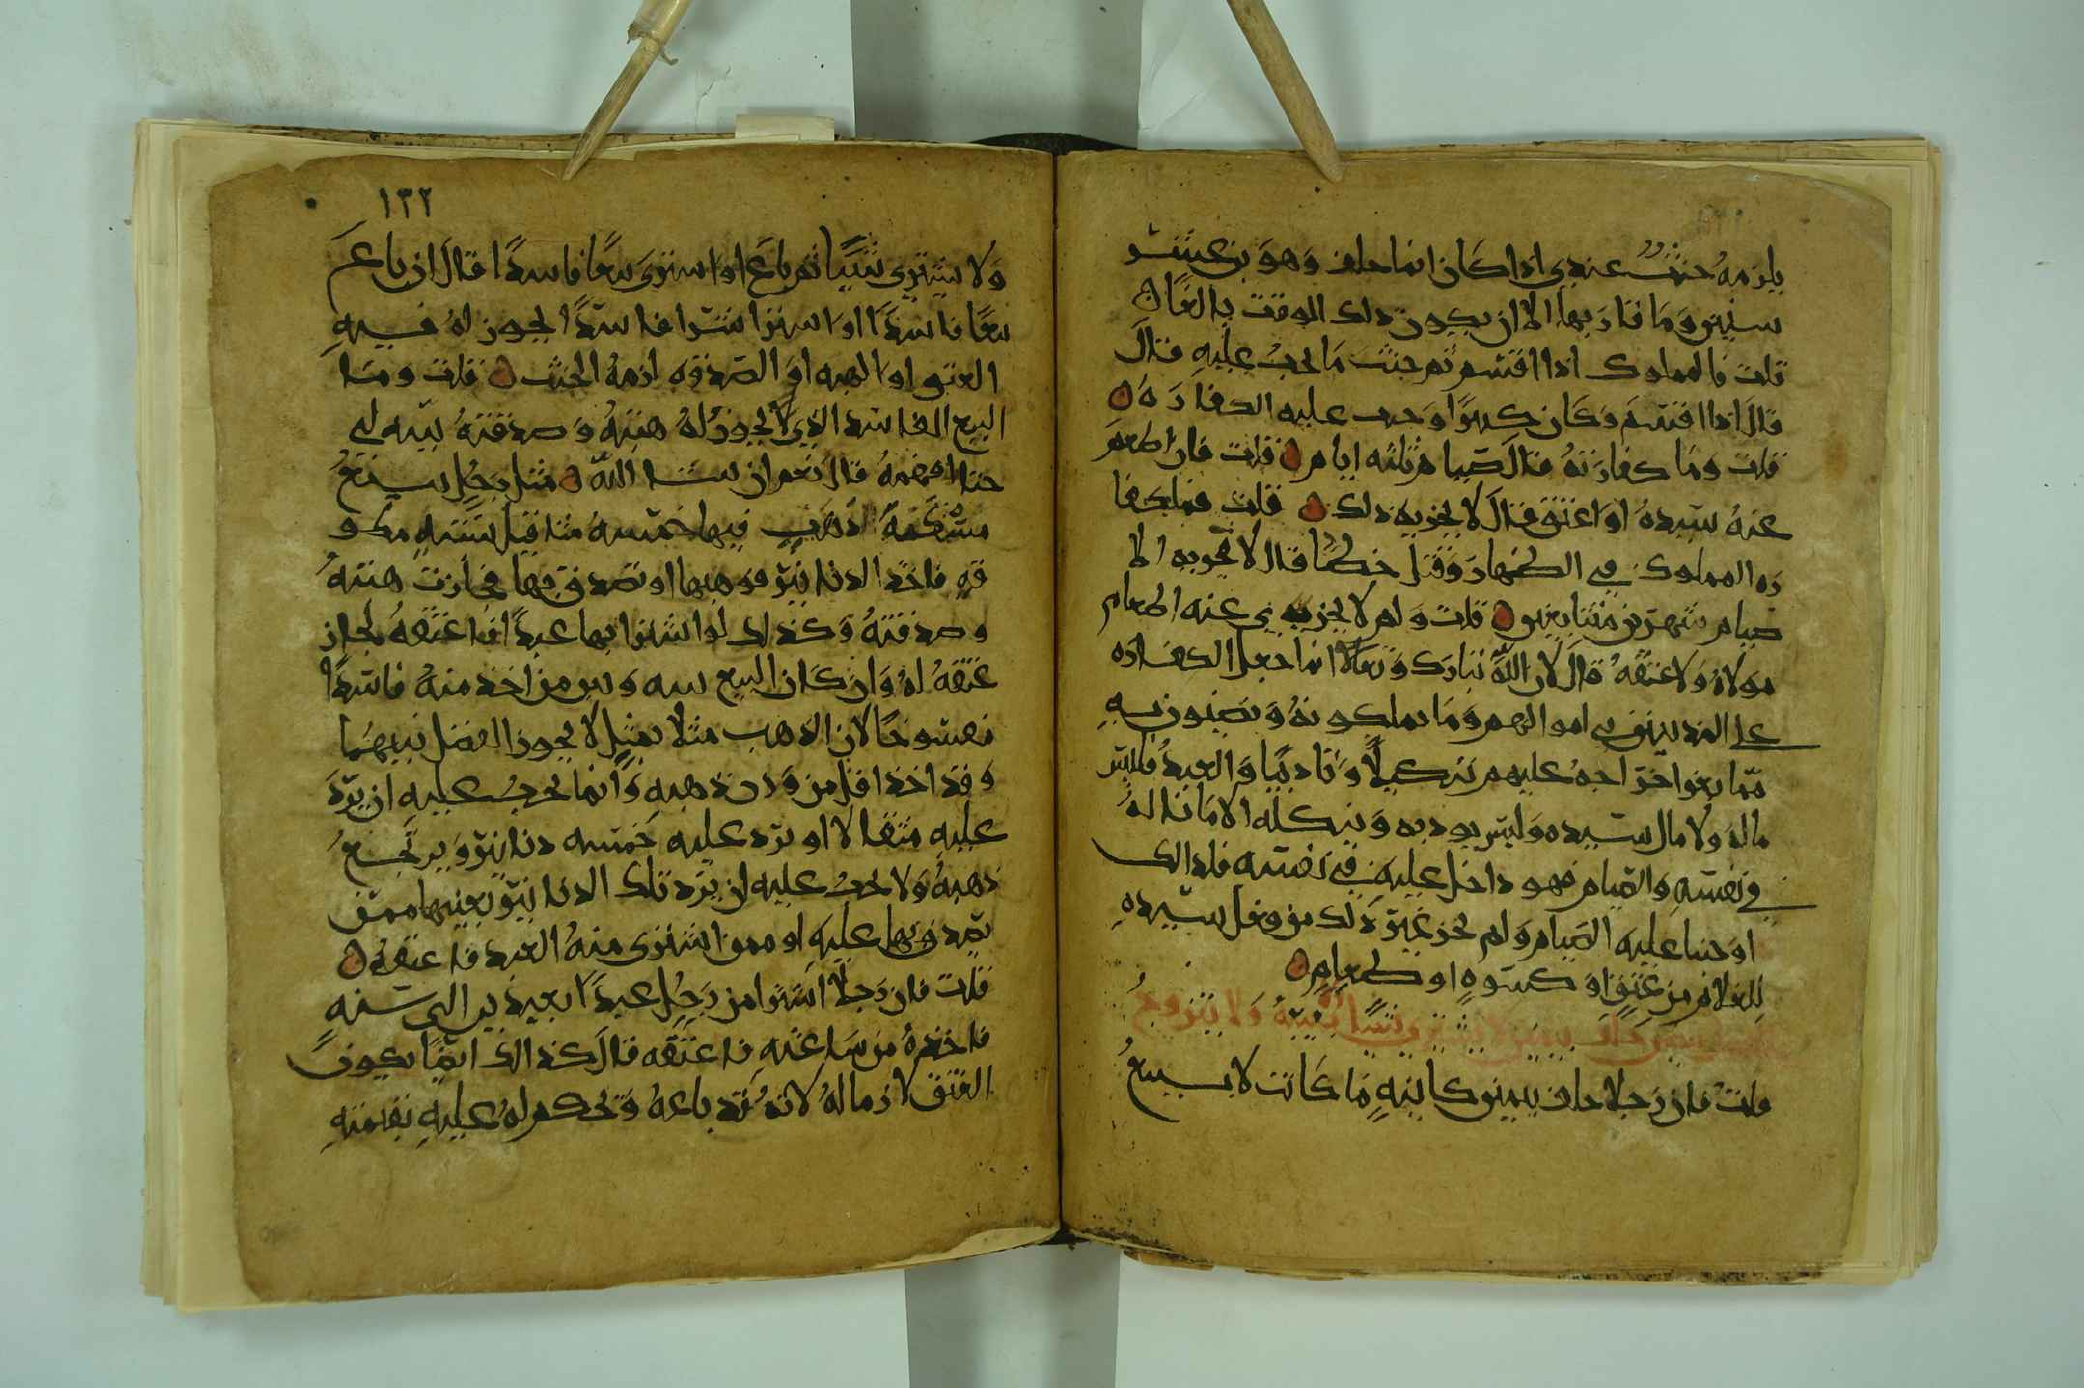 يلزمه حنث عندي اذا كان انما حلف وهو بن عشر
سنين وما قاربها الا ان يكون ذلك الوقت بالغا
قلت فالمملوك اذا اقسم ثم حنث ما يجب عليه قال
قال اذا اقسم وكان كبيرًا وجب عليه الكفارة
قلت وما كفارته قال صيام ثلثه ايام قلت فان اطعم
عنه سيده او اعتق قال لا يجزيه ذلك قلت فما كفا
ره المملوك في الظهار وقتل خطًا قال لا يجزيه الا
صيام شهرين متتابعين قلت ولم لا يجزي عنه اطعام
مولاه ولا عتقه قال لان الله تبارك وتعالا انما جعل الكفاره
على المذنبين في اموالهم وما يملكونه ويضنون به
مما اخراجه عليهم تنكيلًا وتاديبًا والعبد فليس
ماله ولا مال سيده وليس يوديه وينكله الا ما ناله
في نفسه والصيام فهو داخل عليه في نفسه فلذالك
اوجبنا عليه الصيام ولم يجز غير ذلك من فعل سيده
للغلام من عتق او كسوه او طعام
يمين لا يشتري شيًا ولا يتزوج
قلت فان رجلا حلف بيمين كاينه ما كانت لا يبيع
١٣٢
ولا يشتري شيًا ثم باع او اشترى بيعًا فاسدًا قال ان باع
بيعًا فاسدًا او اشترا شرا فاسدًا يجوز له فيه
العتق او الهبه او الصدقه لزمه الحنث قلت وما
البيع الفاسد الذي لا يجوز له هبته وصدقته بينه لي
حتا افهمه قال نعم ان شا الله مثل رجل يبتع
ذهب فيها خمسه مثاقيل بسته مكو
فه فاخذ الدنانير فوهبها او تصدق بها فجازت هبته
وصدقته وكذلك لو اشترا بها عبدًا فاعتقه لجاز
عتقه له وان كان البيع بينه وبين من اخذ منه فاسدًا
لان الذهب مثلا بمثل لا يجوز الفضل بينهما
وقد اخذ اقل من وزن ذهبه وانما يجب عليه ان يرد
عليه مثقالا او يرد عليه خمسه دنانير ويرتجع
ذهبه ولا يجب عليه ان يرد تلك الدنانير بعينها ممن
تصدق بها عليه او ممن اشترى منه العبد فاعتقه
قلت فان رجلًا اشترا من رجل عبدًا بعبدين الى سنه
فاخذه من ساعته فاعتقه قال كذالك ايضًا يكون
العتق لازما له لانه قد باعه ويحكم له عليه بقيمته